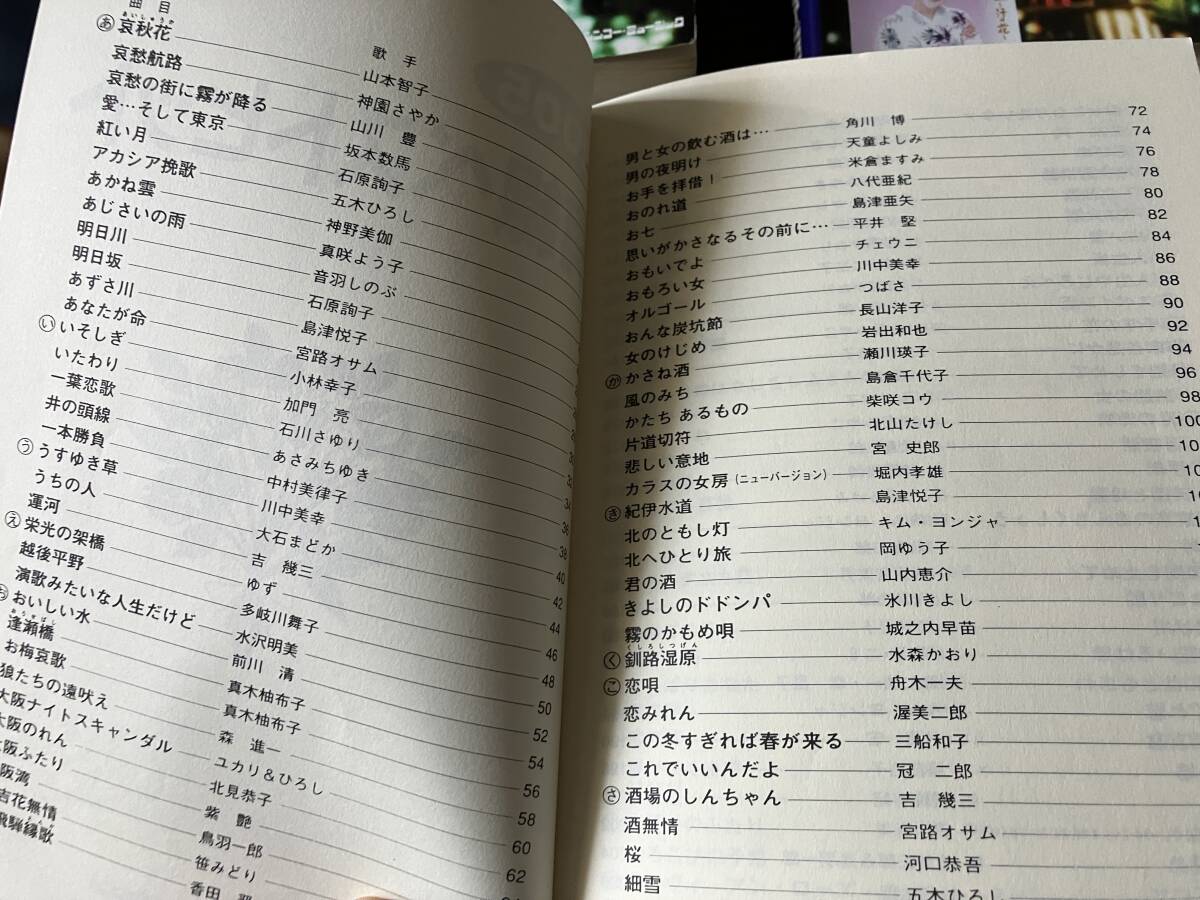 曲目 歌手
あ 哀秋花 山本智子
あいしゅうか
哀愁航路 神園さやか
哀愁の街に霧が降る 山川 豊
愛…そして東京 坂本数馬
紅い月 石原詢子
アカシア挽歌 五木ひろし
あかね雲 神野美伽
あじさいの雨 真咲よう子
明日川 音羽しのぶ
明日坂 石原詢子
あずさ川 島津悦子
あなたが命 宮路オサム
い いそしぎ 小林幸子 30
いたわり 加門 亮 32
一葉恋歌 石川さゆり 34
井の頭線 あさみちゆき 36
一本勝負 中村美律子 38
う うすゆき草 川中美幸 40
うちの人 大石まどか 42
運河 吉 幾三 44
え 栄光の架橋 ゆず 46
越後平野 多岐川舞子 48
演歌みたいな人生だけど 水沢明美 50
お おいしい水 前川 清 52
逢瀬橋 真木柚布子 54
おうせばし
お梅哀歌 真木柚布子 56
狼たちの遠吠え 森 進一 58
大阪ナイトスキャンダル ユカリ&ひろし 60
大阪のれん 北見恭子 62
阪ふたり 紫 艶
阪湾 鳥羽一郎
吉花無情 笹みどり
飛騨縁歌 香田
男と女の飲む酒は… 角川 博 72
男の夜明け 天童よしみ 74
お手を拝借! 米倉ますみ 76
おのれ道 八代亜紀 78
お七 島津亜矢 80
思いがかさなるその前に… 平井 堅 82
おもいでよ チェウニ 84
おもろい女 川中美幸 86
オルゴール つばさ 88
おんな炭坑節 長山洋子 90
女のけじめ 岩出和也 92
か かさね酒 瀬川瑛子 94
風のみち 島倉千代子 96
かたち あるもの 柴咲コウ 98
片道切符 北山たけし 100
悲しい意地 宮 史郎 10
カラスの女房(ニューバージョン) 堀内孝雄 10
き 紀伊水道 島津悦子 10
北のともし灯 キム・ヨンジャ 1
北へひとり旅 岡ゆう子
君の酒 山内恵介
きよしのドドンパ 氷川きよし
霧のかもめ唄 城之内早苗
く 釧路湿原 水森かおり
くしろしつげん
こ 恋唄 舟木一夫
恋みれん 渥美二郎
この冬すぎれば春が来る 三船和子
これでいいんだよ 冠 二郎
さ 酒場のしんちゃん 吉 幾三
酒無情 宮路オサム
桜 河口恭吾
細雪 五木ひろし